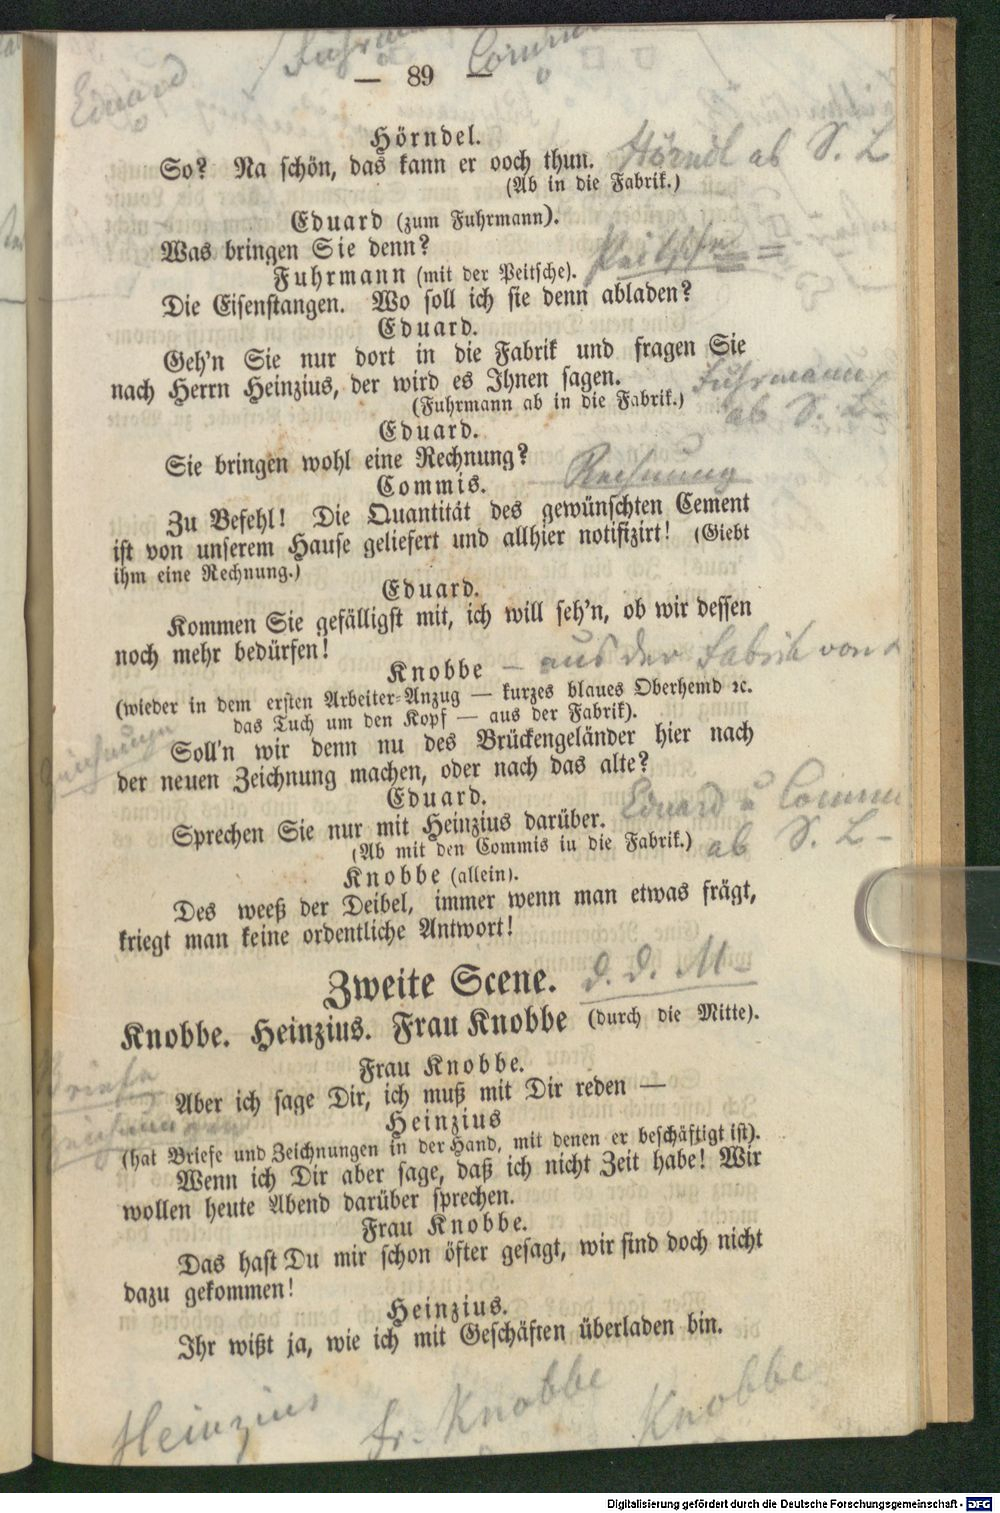 Eduard
— 89 —
Hörndel.
So? Na schön, das kann er ooch thun. Hörndl ab S. L
(Ab in die Fabrik.)
Eduard (zum Fuhrmann).
Was bringen Sie denn? Peitsche
Fuhrmann (mit der Peitsche).
Die Eisenstangen. Wo soll ich sie denn abladen?
Eduard.
Geh'n Sie nur dort in die Fabrik und fragen Sie
nach Herrn Heinzius, der wird es Ihnen sagen. Fuhrmann
(Fuhrmann ab in die Fabrik.) ab S. L-
Eduard.
Sie bringen wohl eine Rechnung? Rechnung
Commis.
Zu Befehl! Die Quantität des gewünschten Cement
ist von unserem Hause geliefert und allhier notifizirt! (Giebt
ihm eine Rechnung.)
Eduard.
Kommen Sie gefälligst mit, ich will seh'n, ob wir dessen
noch mehr bedürfen!
Knobbe — aus der Fabrik von
(wieder in dem ersten Arbeiter-Anzug — kurzes blaues Oberhemd ꝛc.
das Tuch um den Kopf — aus der Fabrik).
Soll'n wir denn nu des Brückengeländer hier nach
der neuen Zeichnung machen, oder nach das alte?
Eduard. Eduard u Commis
Sprechen Sie nur mit Heinzius darüber.
(Ab mit den Commis in die Fabrik.) ab S. L-
Knobbe (allein).
Des weeß der Deibel, immer wenn man etwas frägt,
kriegt man keine ordentliche Antwort!
Zweite Scene. d. d. M-
Knobbe. Heinzius. Frau Knobbe (durch die Mitte).
Frau Knobbe.
Briefe
Aber ich sage Dir, ich muß mit Dir reden —
Heinzius
Zeichnungen
(hat Briefe und Zeichnungen in der Hand, mit denen er beschäftigt ist).
Wenn ich Dir aber sage, daß ich nicht Zeit habe! Wir
wollen heute Abend darüber sprechen.
Frau Knobbe.
Das hast Du mir schon öfter gesagt, wir sind doch nicht
dazu gekommen!
Heinzius.
Ihr wißt ja, wie ich mit Geschäften überladen bin.
Heinzius Fr. Knobbe Knobbe
Digitalisierung gefördert durch die Deutsche Forschungsgemeinschaft - DFG